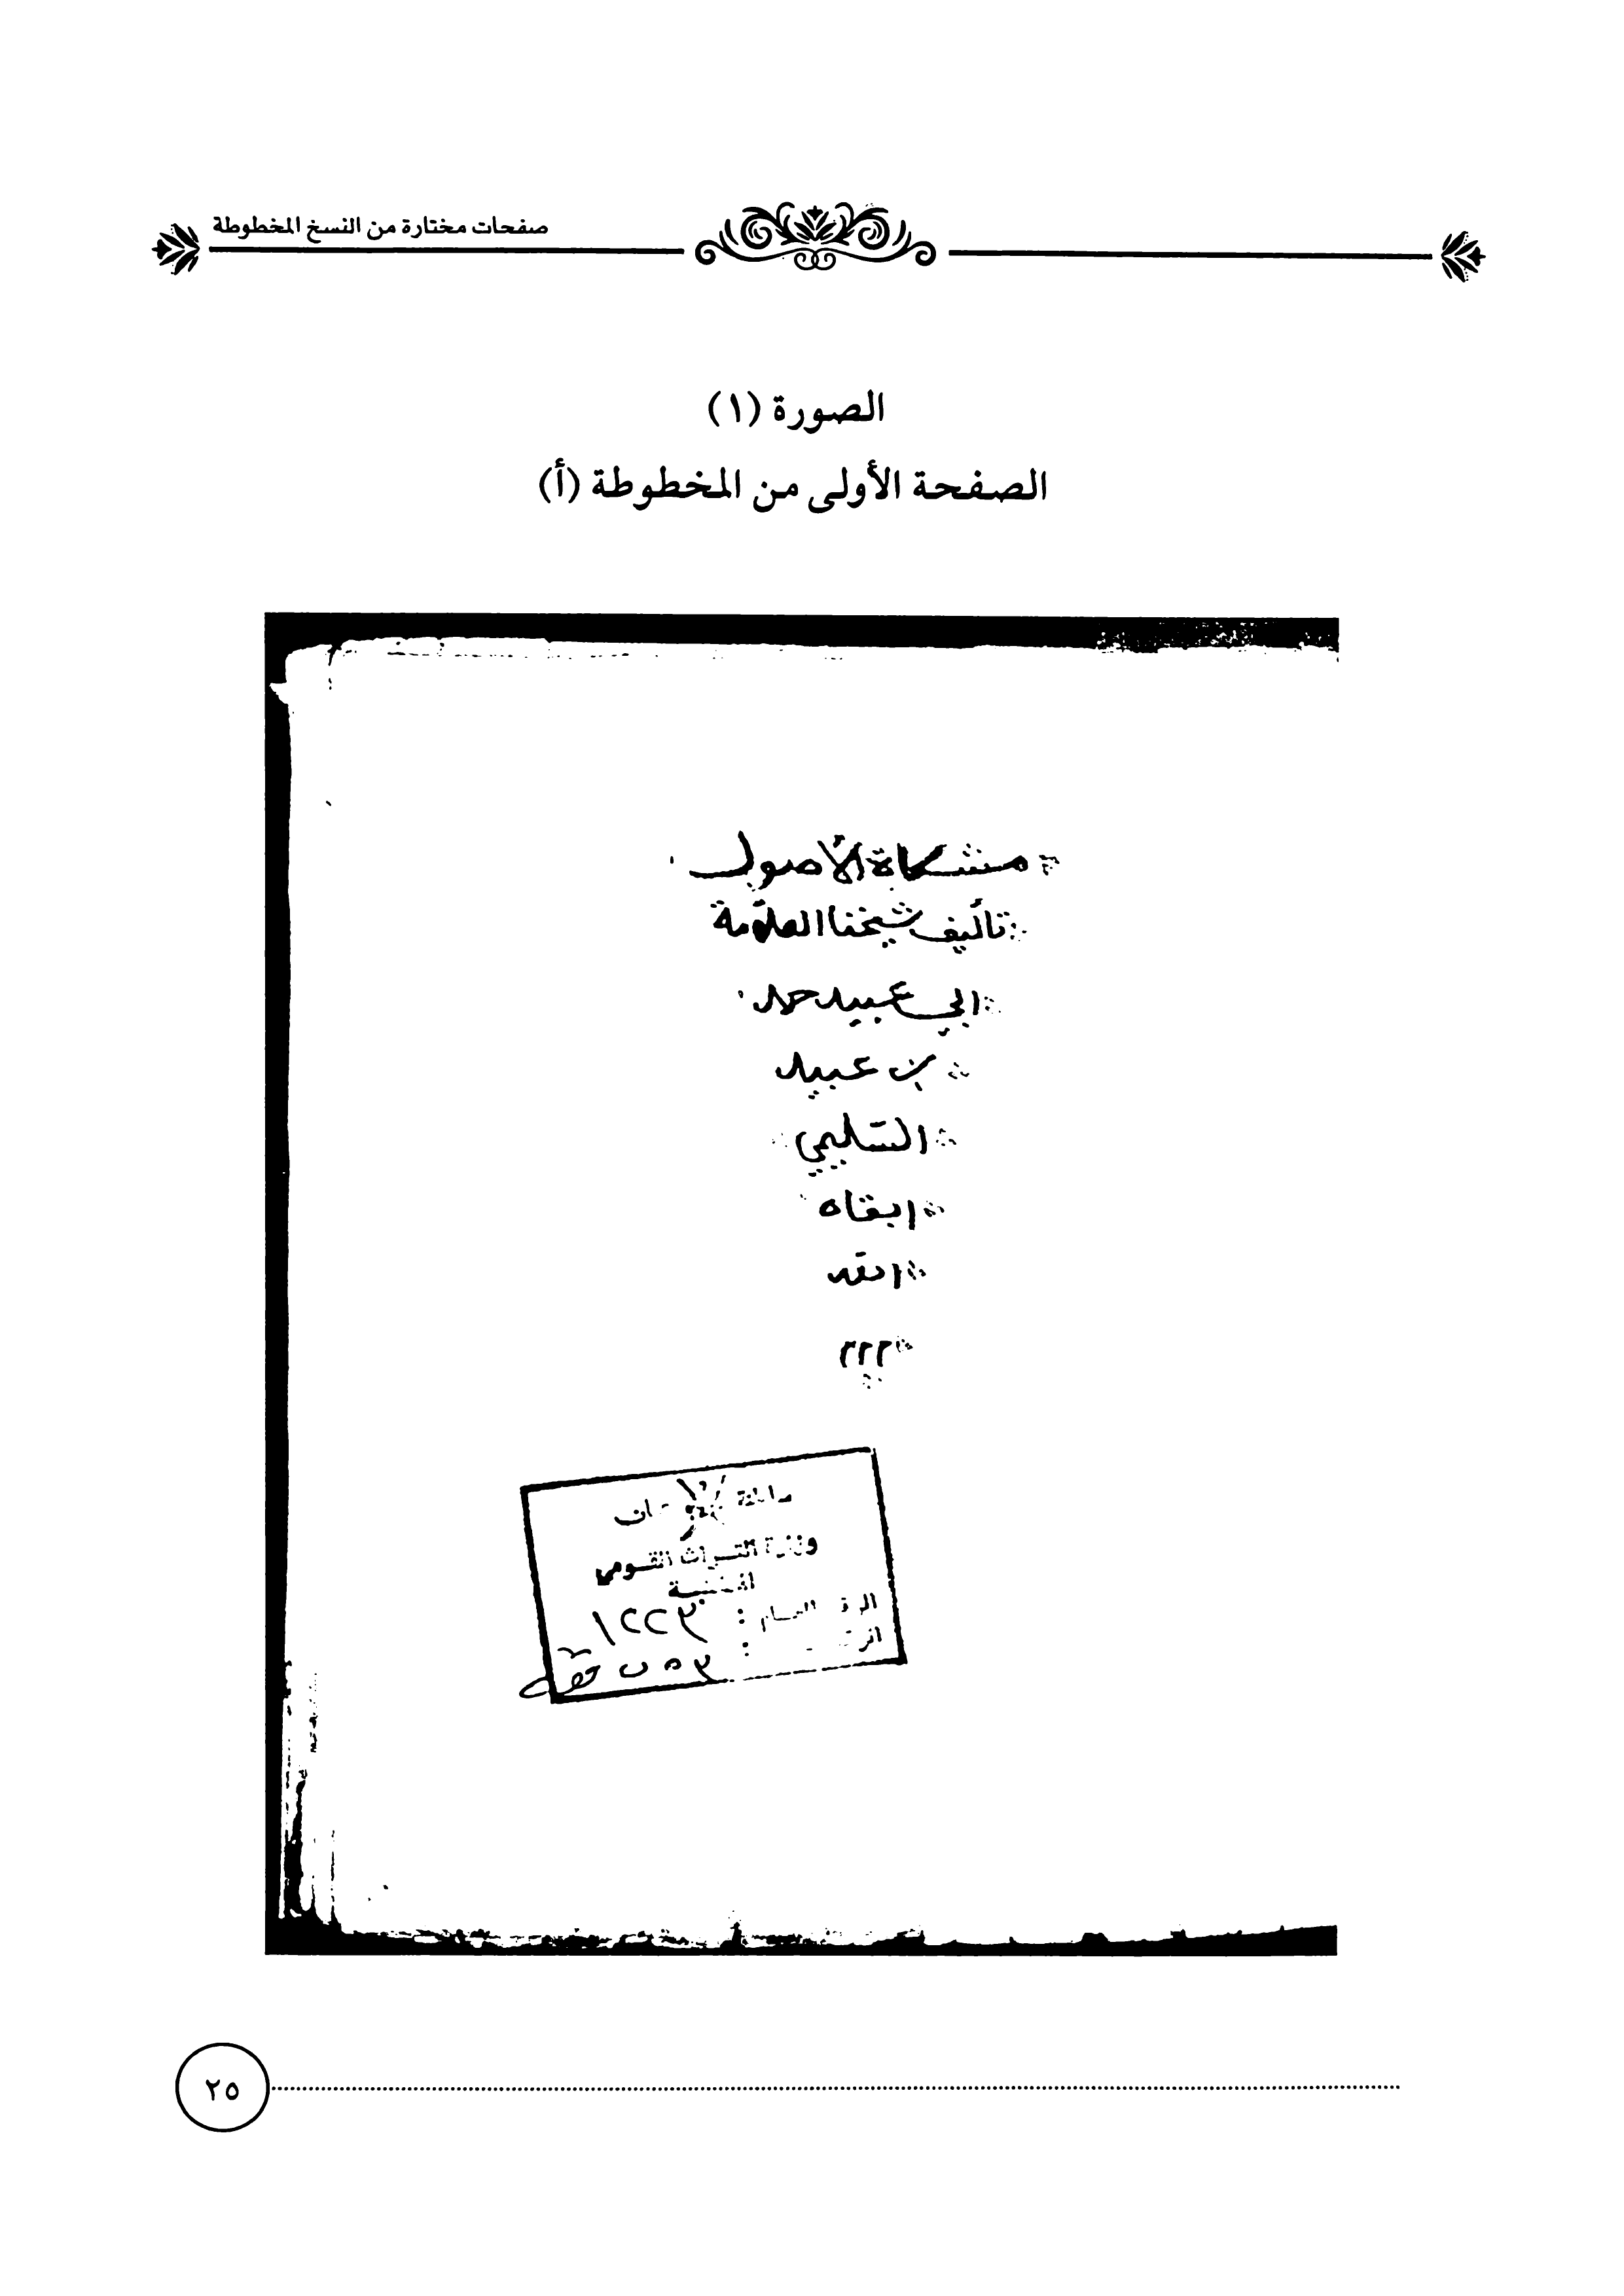 صفحات مختارة من النسخ المخطوطة
الصورة (١)
الصفحة الأولى من المخطوطة (أ)
مشكاة الأصول
تأليف شيخنا العلامة
ابي عبيد حمد
بن عبيد
السليمي
ابقاه
الله
وزارة التراث القومي
٢٥